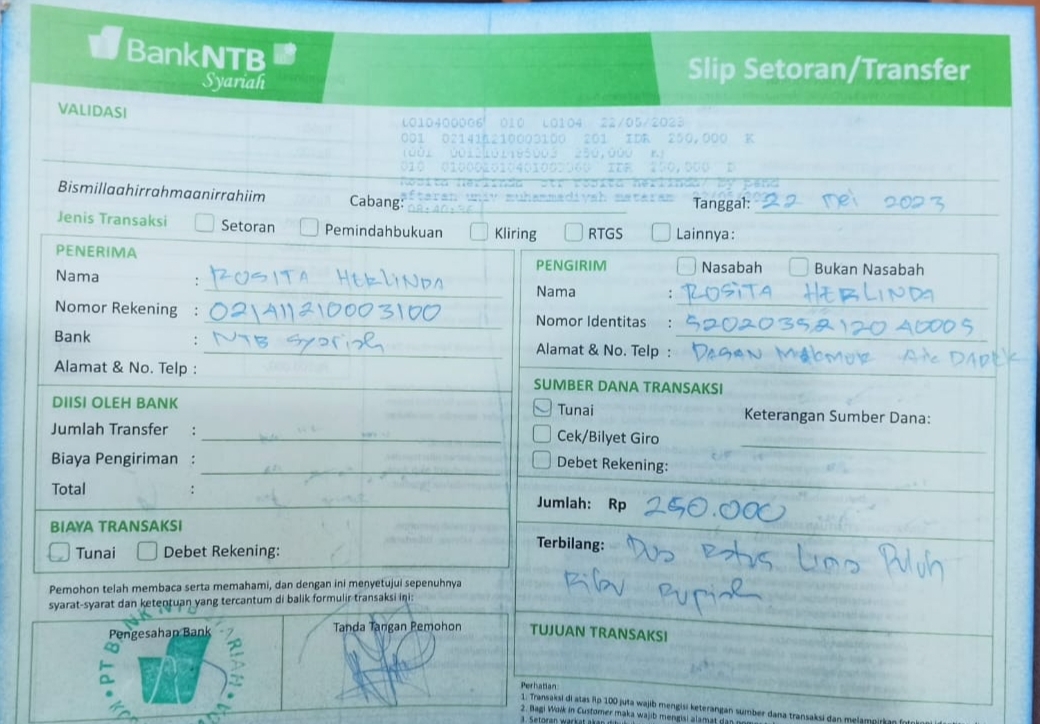 BankNTB
Syariah
Slip Setoran/Transfer
VALIDASI
0010400006 010 C0104 22/05/2023
001 021411210003100 201 IDR 250,000 K
250,000
010 IDR 250,000 D
Rosita Herlinda str rosita herlinda/ by pend
aftaran univ muhammadiyah mataram
Bismillaahirrahmaanirrahiim
Cabang:
Tanggal: 22 Mei 2023
Jenis Transaksi Setoran Pemindahbukuan Kliring RTGS Lainnya:
PENERIMA
Nama : ROSITA HERLINDA
Nomor Rekening : 021411210003100
Bank : NTB Syariah
Alamat & No. Telp :
DIISI OLEH BANK
Jumlah Transfer :
Biaya Pengiriman :
Total :
BIAYA TRANSAKSI
Tunai Debet Rekening:
Pemohon telah membaca serta memahami, dan dengan ini menyetujui sepenuhnya
syarat-syarat dan ketentuan yang tercantum di balik formulir transaksi ini:
Pengesahan Bank
Tanda Tangan Pemohon
PT BANK NTB SYARIAH
PENGIRIM Nasabah Bukan Nasabah
Nama : ROSITA HERLINDA
Nomor Identitas :
Alamat & No. Telp : DASAN
SUMBER DANA TRANSAKSI
Tunai Keterangan Sumber Dana:
Cek/Bilyet Giro
Debet Rekening:
Jumlah: Rp 250.000
Terbilang: Dua Ratus Lima Puluh
Ribu Rupiah
TUJUAN TRANSAKSI
Perhatian:
1. Transaksi di atas Rp 100 juta wajib mengisi keterangan sumber dana transaksi dan melampirkan fotokopi
2. Bagi Walk in Customer maka wajib mengisi alamat dan
3. Setoran warkat akan